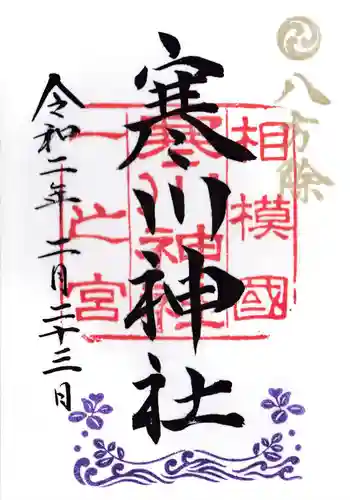 八方除
相模國
寒川神社
一之宮
寒川神社
令和二年 二月二十三日